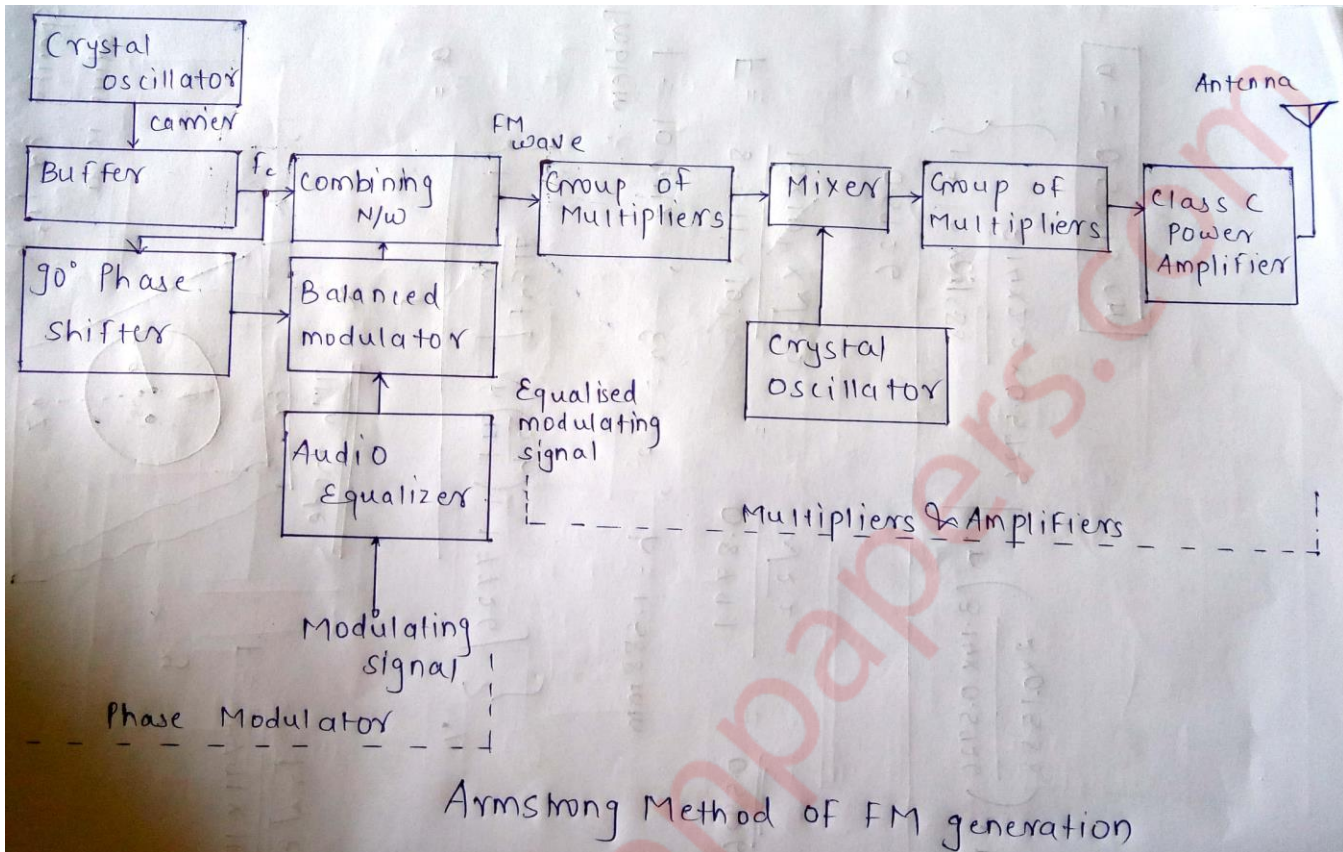 Crystal
oscillator
carrier
Buffer
fc
Combining
N/W
FM
wave
Group of
Multipliers
Mixer
Group of
Multipliers
Class C
Power
Amplifier
Antenna
90° Phase
Shifter
Balanced
modulator
Crystal
Oscillator
Audio
Equalizer
Equalised
modulating
signal
Multipliers & Amplifiers
Modulating
signal
Phase Modulator
Armstrong Method of FM generation
npapers.com